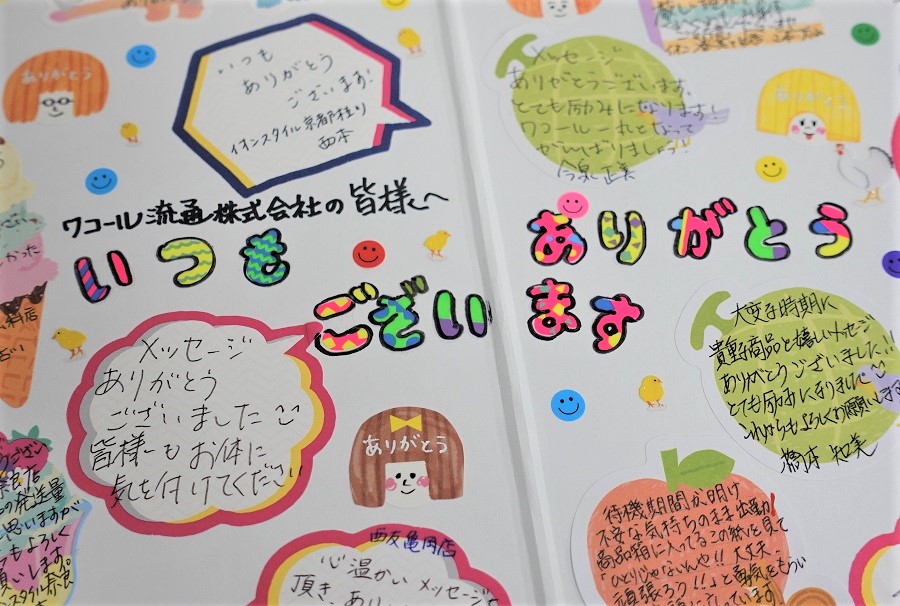 ありがとう
いつも
ありがとう
ございます!
イオンスタイル京都桂川
西本
メッセージ
ありがとうございます。
とても励みになります!
ワコール一丸となって
がんばりましょう!
今泉 正美
ありがとう
ワコール流通株式会社の皆様へ
いつも ありがとう
ございます
かった
料店
メッセージ
ありがとう
ございました
皆様もお体に
気を付けてください
ありがとう
大変な時期に
貴重な商品と嬉しいメッセージ
ありがとうございました!!
とても励みになりました
これからもよろしくお願いします
知美
の発送量
思いますが
もよろしく
願いします。
西友亀岡店
心温かいメッセージ
頂き、あり
待機期間が明け
不安な気持ちのまま出勤
商品箱に入ってるこの紙を見て
「ひとりじゃないんや!!大丈夫、
頑張ろう!!」と勇気をもらい